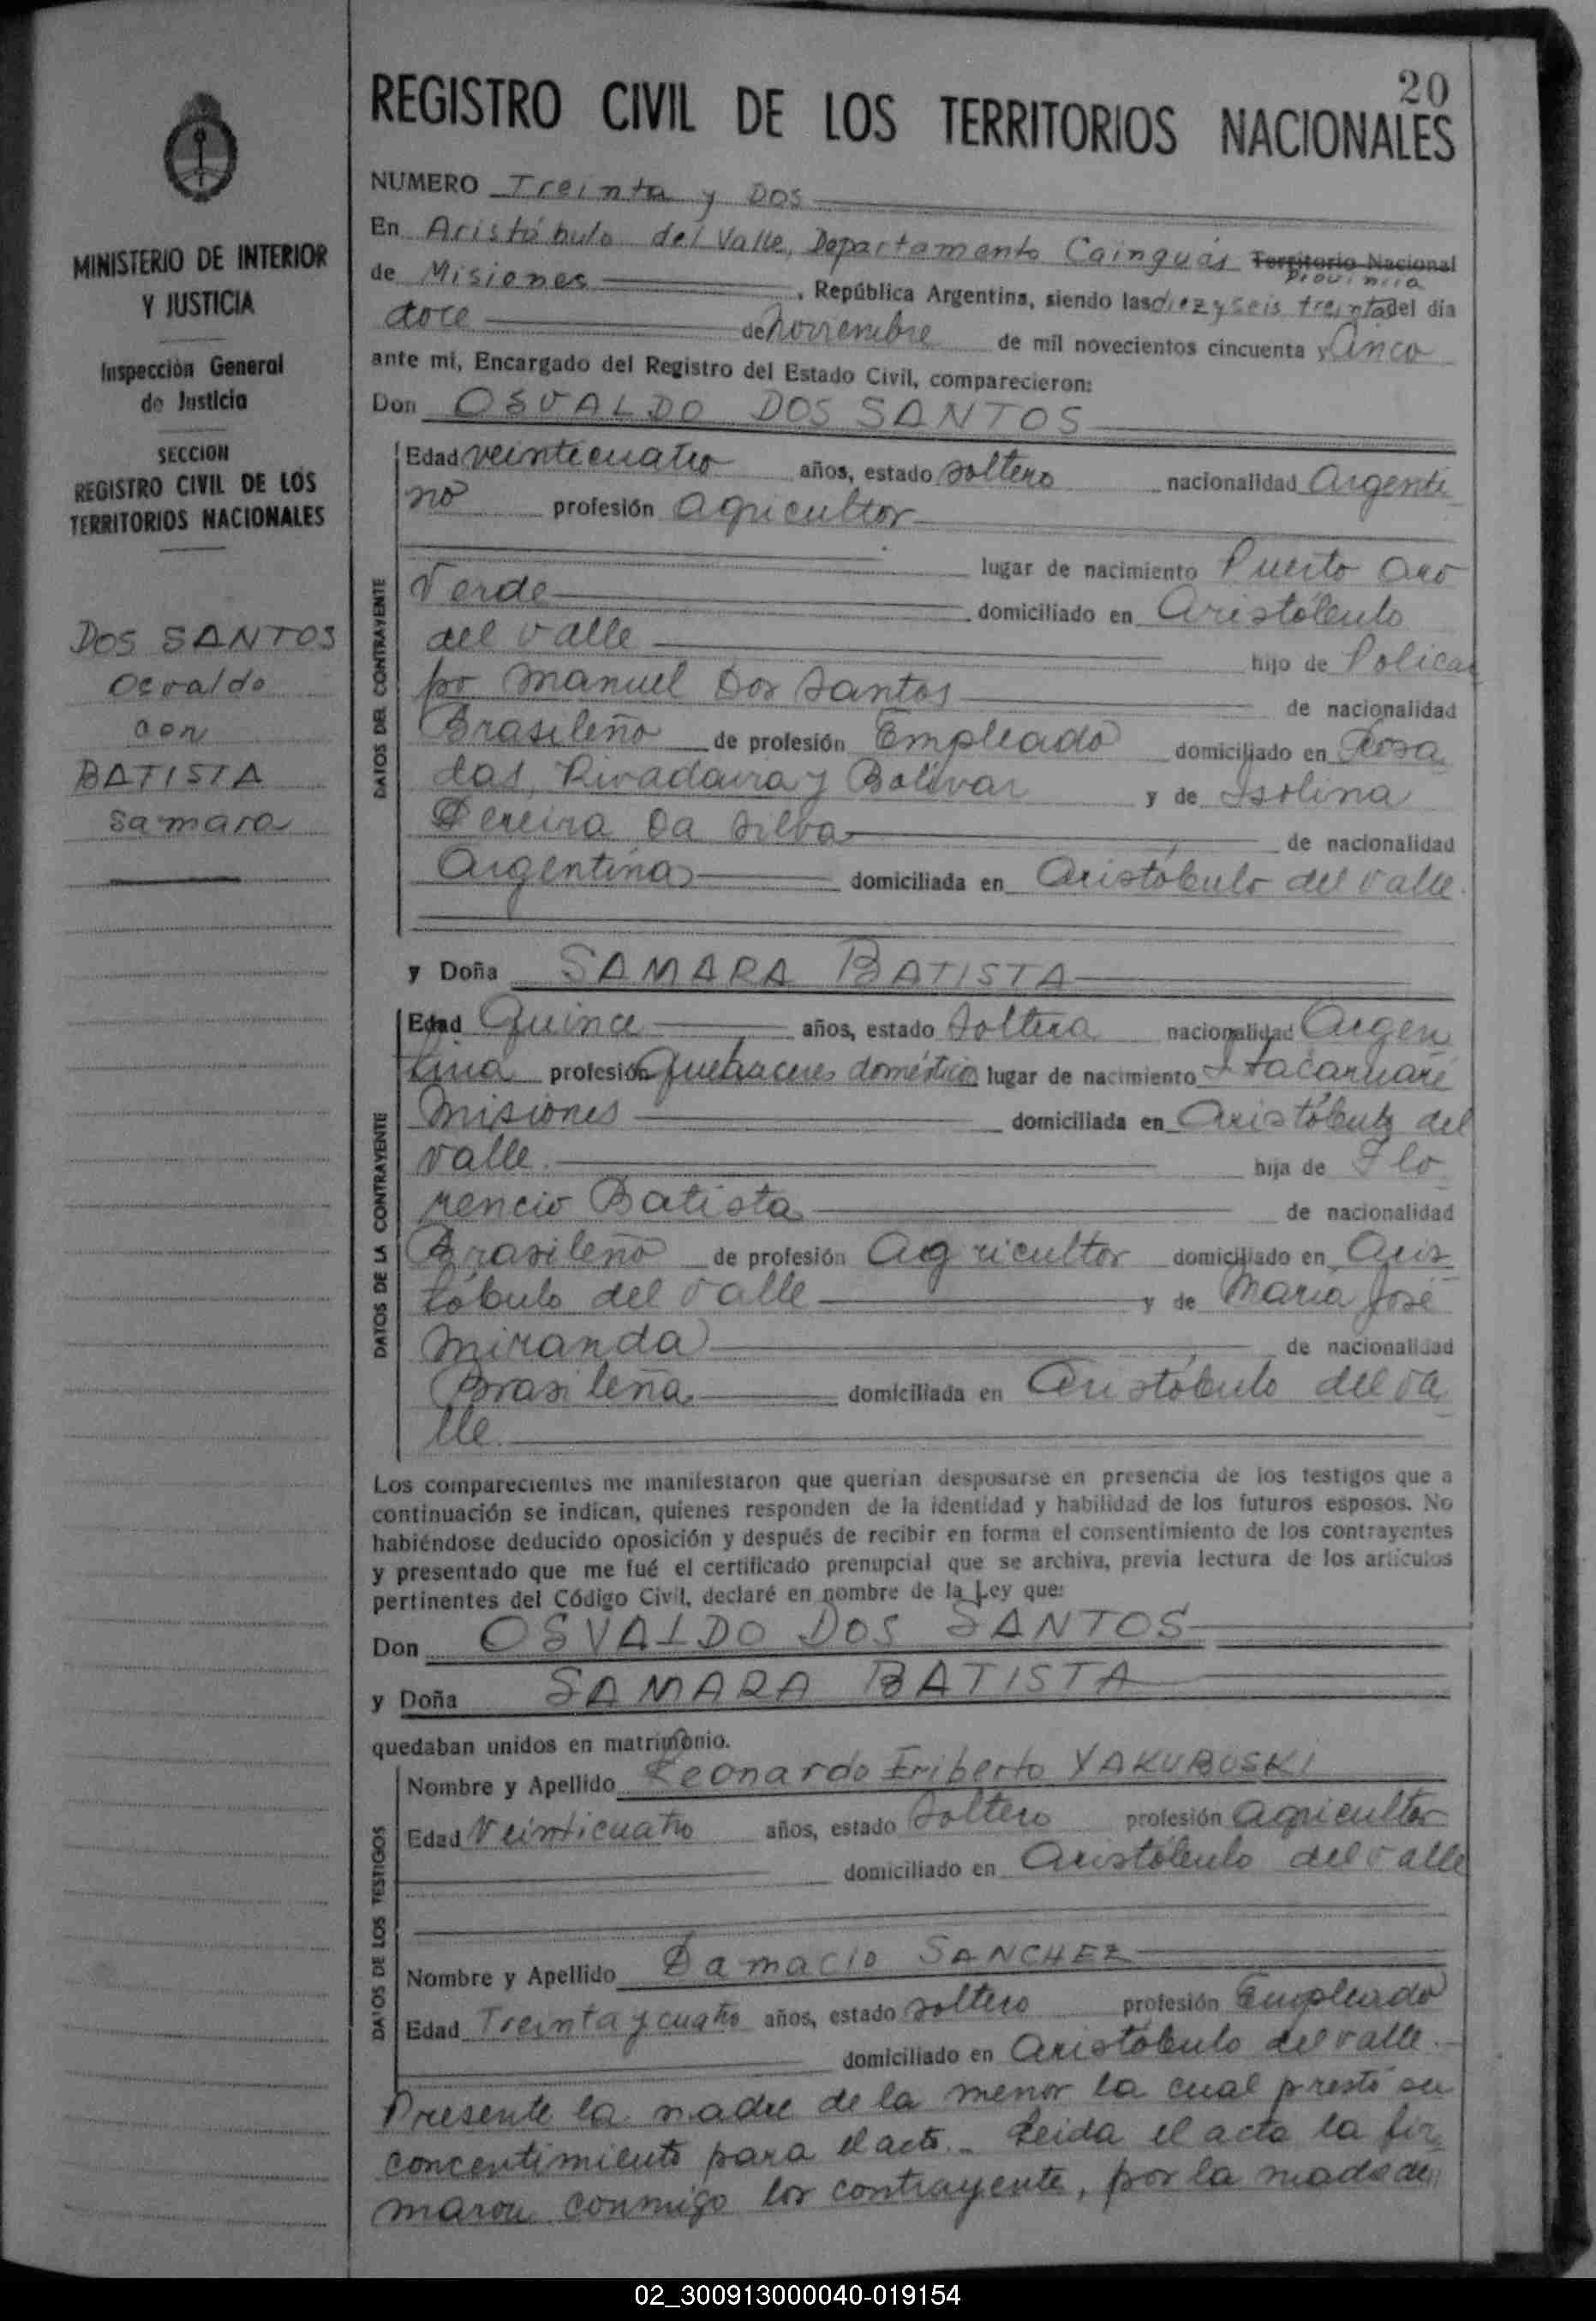 20
REGISTRO CIVIL DE LOS TERRITORIOS NACIONALES
MINISTERIO DE INTERIOR
Y JUSTICIA
Inspección General
de Justicia
SECCION
REGISTRO CIVIL DE LOS
TERRITORIOS NACIONALES
DOS SANTOS
Osvaldo
con
BATISTA
Samara
NUMERO Treinta y DOS
En Aristóbulo del Valle, Departamento Cainguás Territorio Nacional
Provincia
de Misiones , República Argentina, siendo las diez y seis treinta del día
doce de noviembre de mil novecientos cincuenta y Cinco
ante mí, Encargado del Registro del Estado Civil, comparecieron:
Don OSVALDO DOS SANTOS
DATOS DEL CONTRAYENTE
Edad veinticuatro años, estado soltero nacionalidad Argenti
no profesión agricultor
lugar de nacimiento Puerto Oro
Verde domiciliado en Aristóbulo
del Valle hijo de Policar
po Manuel Dos Santos de nacionalidad
Brasileño de profesión Empleado domiciliado en Posa
das, Rivadavia y Bolívar y de Isolina
Pereira Da Silva de nacionalidad
Argentina domiciliada en Aristóbulo del Valle
y Doña SAMARA BATISTA
DATOS DE LA CONTRAYENTE
Edad Quince años, estado Soltera nacionalidad Argen
tina profesión Quehaceres domésticos lugar de nacimiento Itacaruaré
Misiones domiciliada en Aristóbulo del
Valle. hija de Flo
rencio Batista de nacionalidad
Brasileño de profesión Agricultor domiciliado en Aris
tóbulo del Valle y de María José
Miranda de nacionalidad
Brasileña domiciliada en Aristóbulo del Va
lle.
Los comparecientes me manifestaron que querían desposarse en presencia de los testigos que a
continuación se indican, quienes responden de la identidad y habilidad de los futuros esposos. No
habiéndose deducido oposición y después de recibir en forma el consentimiento de los contrayentes
y presentado que me fué el certificado prenupcial que se archiva, previa lectura de los artículos
pertinentes del Código Civil, declaré en nombre de la Ley que:
Don OSVALDO DOS SANTOS
y Doña SAMARA BATISTA
quedaban unidos en matrimonio.
DATOS DE LOS TESTIGOS
Nombre y Apellido Leonardo Eriberto YAKUBOSKI
Edad Veinticuatro años, estado Soltero profesión agricultor
domiciliado en Aristóbulo del Valle
Nombre y Apellido Damacio SANCHEZ
Edad Treinta y cuatro años, estado soltero profesión Empleado
domiciliado en Aristóbulo del Valle.
Presente la madre de la menor la cual prestó su
concentimiento para el acto. Leida el acta la fir
maron conmigo los contrayente, por la madre de
02_300913000040-019154